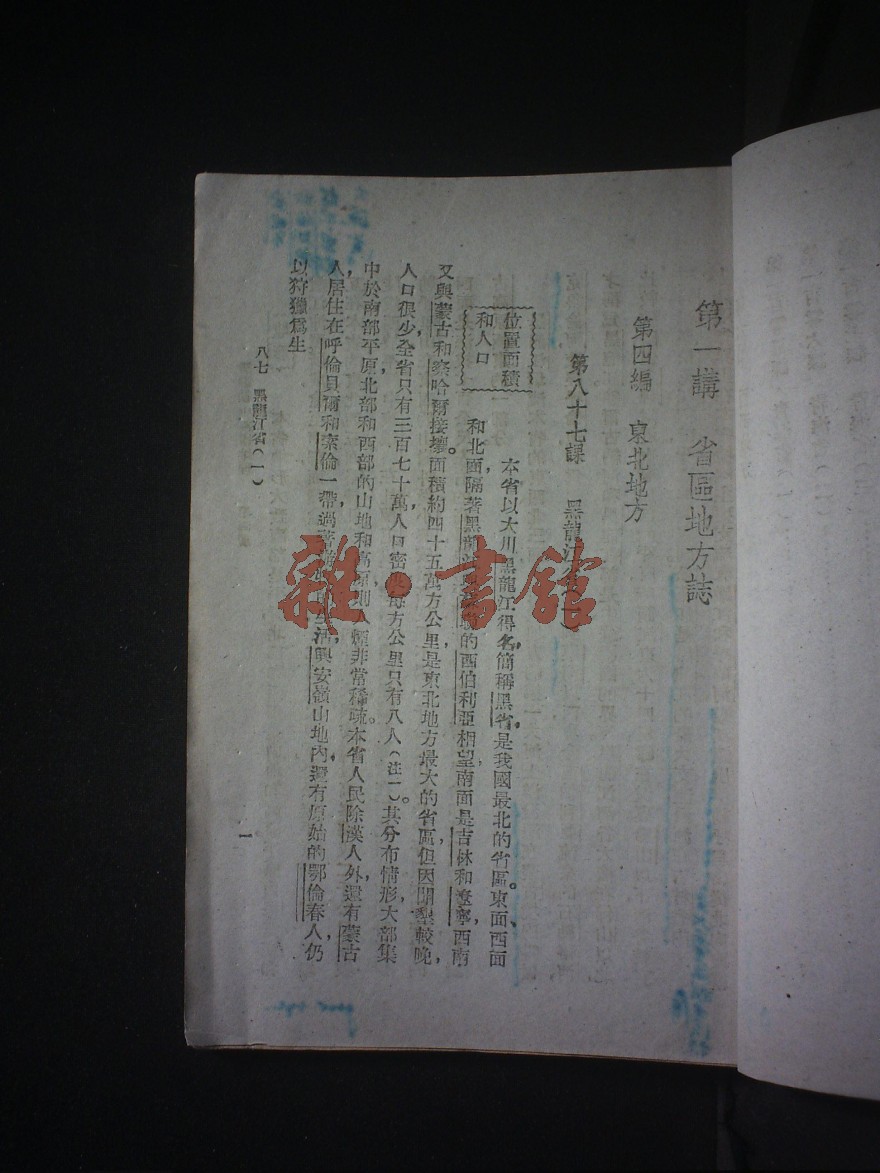 第一講 省區地方誌
第四編 東北地方
第八十七課 黑龍江
位置面積
和人口
本省以大川黑龍江得名，簡稱黑省，是我國最北的省區。東面、西面
和北面，隔著黑龍江的西伯利亞相望，南面是吉林和遼寧，西南
又與蒙古和察哈爾接壤。面積約四十五萬方公里，是東北地方最大的省區，但因開墾較晚，
人口很少，全省只有三百七十萬人，口密度每方公里只有八人（註一）。其分布情形，大部集
中於南部平原，北部和西部的山地和高原，則人煙非常稀疏。本省人民除漢人外，還有蒙古
人，居住在呼倫貝爾和索倫一帶，過著生活，興安嶺山地內，還有原始的鄂倫春人，仍
以狩獵爲生
八七 黑龍江省（一）
一
雜·書館